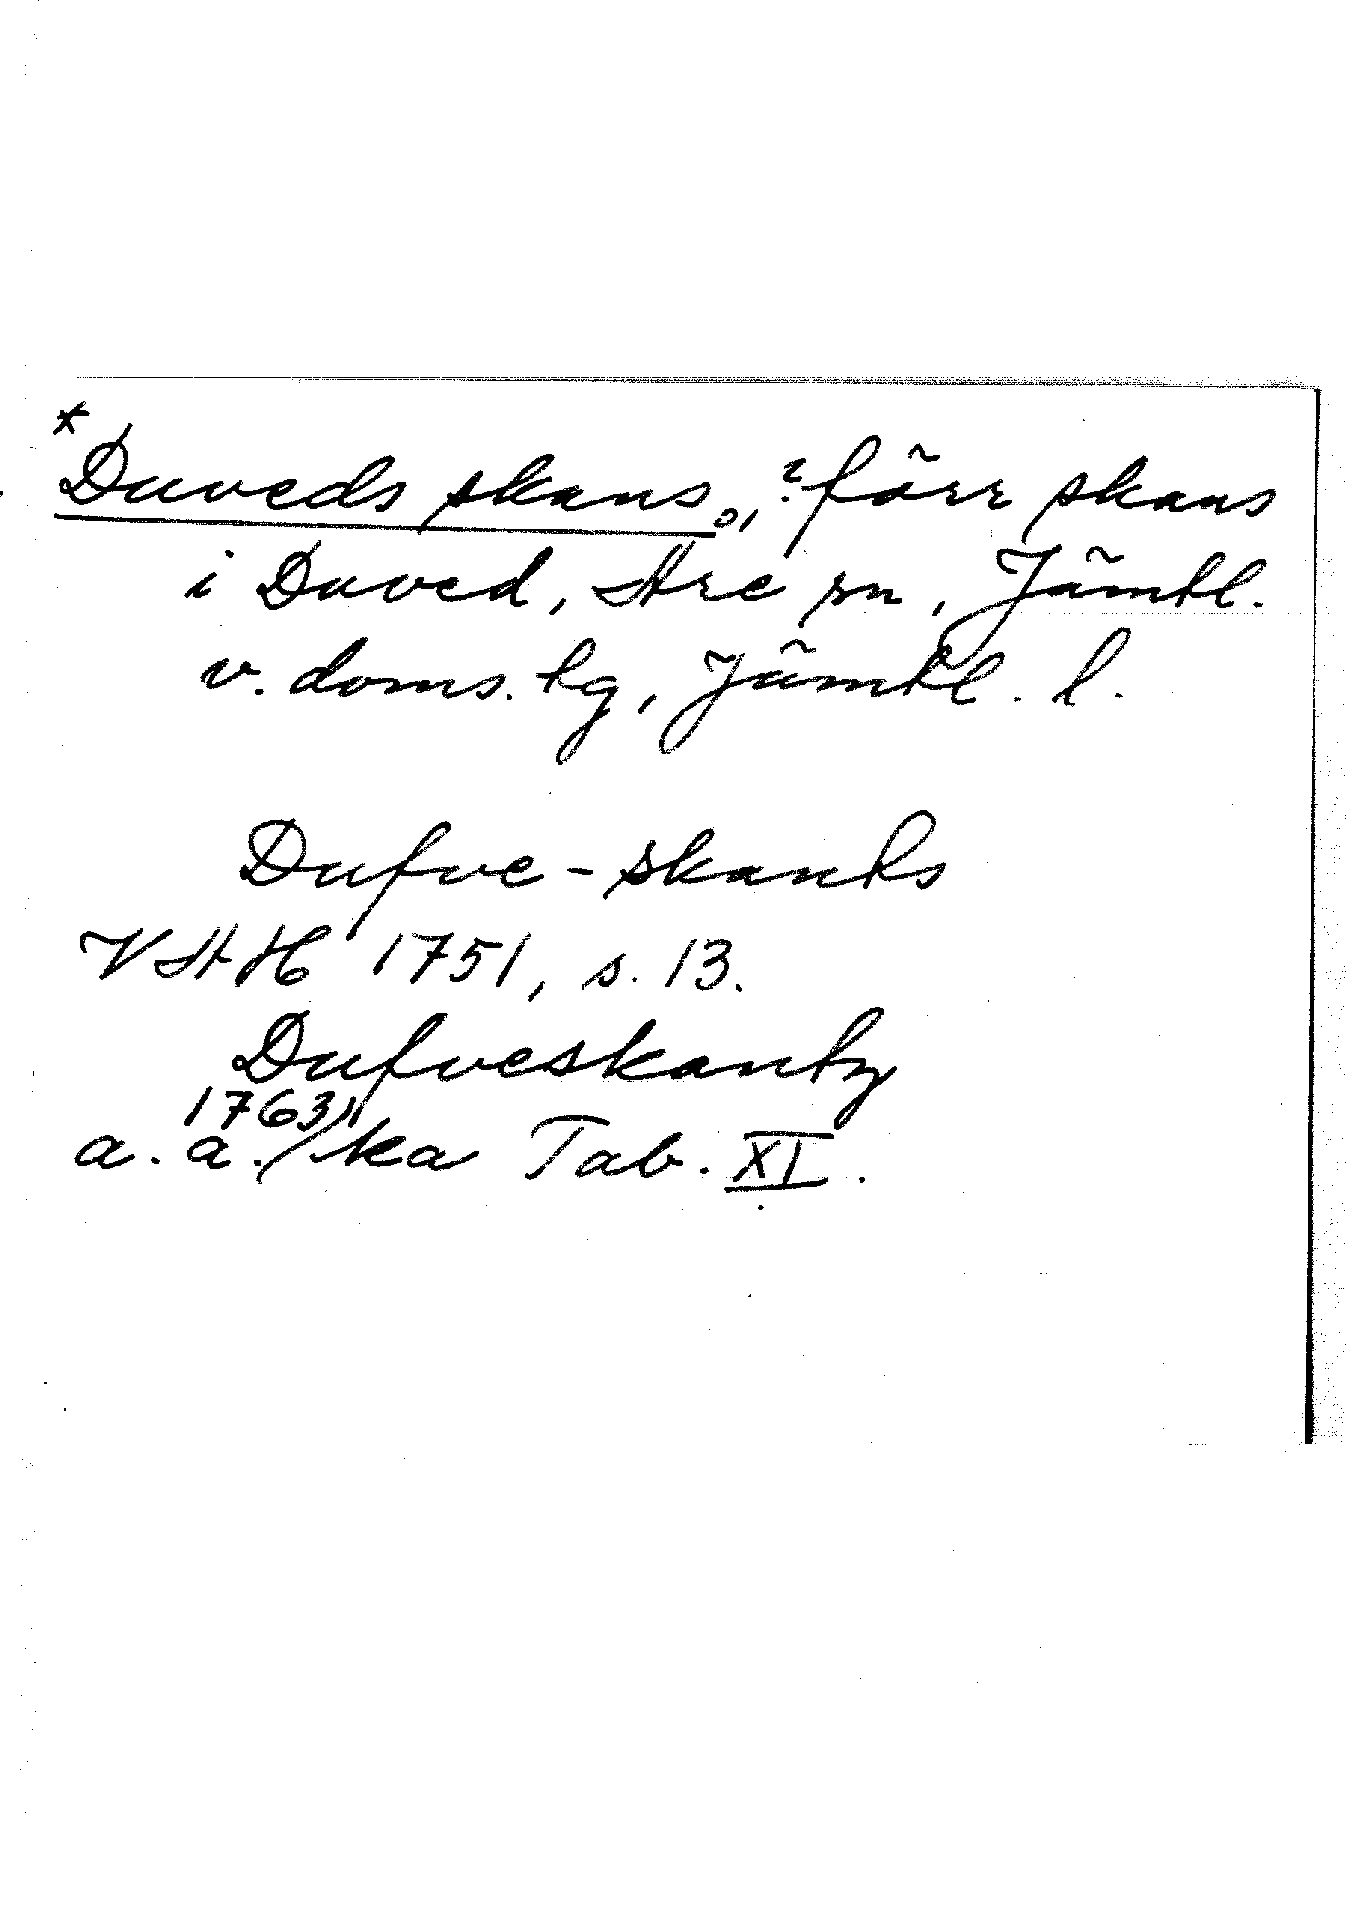 *Duveds skans, ? förr skans
i Duved, Åre sn, Jämtl.
v. doms. tg, Jämtl. l.
Dufve-skants
VAH 1751, s. 13.
Dufveskantz
1763
a. a. ka Tab. XI.